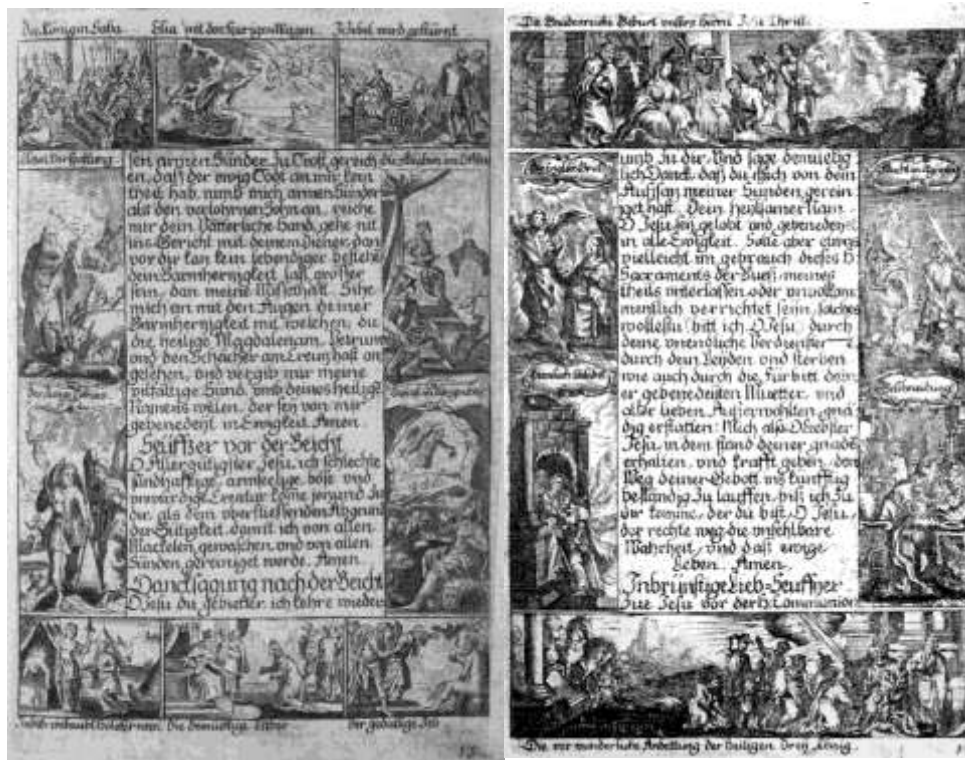 Die Königin Saba
Elia mit den feurigen Wagen
Jesabel wird gestürzt
sen armen Sünder zu Trost gereich
en, daß der ewig Todt an mir kein
theil hab, nimb mich armen Sünder
als den verlohrnen Sohn an, reiche
mir dein Vätterliche hand, gehe nit
ins Gericht mit deinem Diener, dan
vor dir kan kein lebendiger bestehe
dein Barmhertzigkeit laß grösser
sein, dan meine Missethatt. Sihe
mich an mit den Augen deiner
Barmhertzigkeit mit welchen, du
die heilige Magdalenam, Petrum
und den Schächer am Creutz hast an
gesehen, und vergib mir meine
vilfältige Sünd, umb deines heilige
Namens willen, der sey von mir
gebenedeyt in Ewigkeit Amen.
Seüfftzer vor der Beicht
O Allergütigster Jesu, ich schlechte
sündhafftige, armseelige, böse und
unwürdige Creatur kome zu
dir, als dem überfliessenden Abgrun
der Gütigkeit, damit ich von allen
Mackelen gewaschen, und von allen
Sünden gereiniget werde. Amen
Dancksagung nach der Beicht
O Jesu du gebietter ich kehre wieder
Die demüetige Esther
Der gedultige Job
13
Die Freüdenreiche Geburt unsers Herrn Jesu Christi.
umb zu dir, und sage demüetig
lich Danck, daß du mich von dem
Außsaz meiner Sünden gerein
iget hast. Dein heylsamer Nam
O Jesu sey gelobt und gebenedeyt
in alle Ewigkeit. Solte aber etwas
vielleicht im gebrauch dieses H.
Sacraments der Bueß, meines
theils unterlassen, oder unvolkom
mentlich verrichtet sein, solches
wollestu, bitt ich, O Jesu, durch
deine unendliche Verdienst
durch dein Leyden und sterben
wie auch durch die Fürbitt dein
er gebenedeyten Muetter, und
aller lieben Außerwöhlten, gnä
dig erstatten: Mich also O liebster
Jesu, in dem stand deiner gnade
erhalten, und krafft geben, den
Weg deiner Gebott ins künfftig
beständig zu lauffen, biß ich zu
dir komme, der du bist, O Jesu,
der rechte weg die unfehlbare
Wahrheit, und daß ewige
Leben. Amen.
Inbrünstige Lieb-Seuffzer
zue Jesu vor der H. Communion
Beschneidung
Die ver wunderliche Anbettung der Heiligen Drey König.